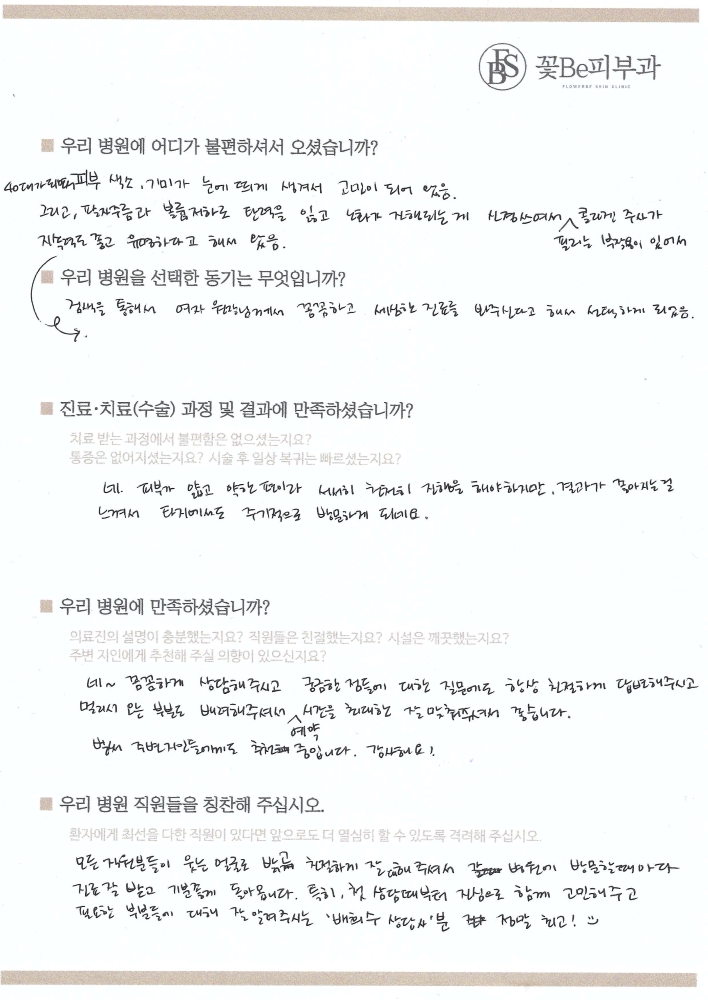 FBS
꽃Be피부과
FLOWERBE SKIN CLINIC
우리 병원에 어디가 불편하셔서 오셨습니까?
40대가 되면서 피부 색소, 기미가 눈에 띄게 생겨서 고민이 되어 왔음.
그리고, 팔자주름과 볼륨저하로 탄력을 잃고 노화가 진행되는게 신경쓰여서 콜라겐 주사가
필러는 부작용이 있어서
지속력도 좋고 유명하다고 해서 왔음.
우리 병원을 선택한 동기는 무엇입니까?
검색을 통해서 여자 원장님께서 꼼꼼하고 세심한 진료를 봐주신다고 해서 선택하게 되었음.
진료·치료(수술) 과정 및 결과에 만족하셨습니까?
치료 받는 과정에서 불편함은 없으셨는지요?
통증은 없어지셨는지요? 시술 후 일상 복귀는 빠르셨는지요?
네. 피부가 얇고 약한 편이라 서서히 천천히 진행을 해야하지만, 결과가 좋아지는걸
느껴서 타지에서도 주기적으로 방문하게 되네요.
우리 병원에 만족하셨습니까?
의료진의 설명이 충분했는지요? 직원들은 친절했는지요? 시설은 깨끗했는지요?
주변 지인에게 추천해 주실 의향이 있으신지요?
네~ 꼼꼼하게 상담해주시고 궁금한 점들에 대한 질문에도 항상 친절하게 답변해주시고
멀리서 오는 부분도 배려해주셔서 시간을 최대한 잘 맞춰주셔서 좋습니다.
예약
벌써 주변지인들에게도 추천 중입니다. 감사해요!
우리 병원 직원들을 칭찬해 주십시오.
환자에게 최선을 다한 직원이 있다면 앞으로도 더 열심히 할 수 있도록 격려해 주십시오
모든 직원분들이 웃는 얼굴로 밝고 친절하게 잘 대해 주셔서 병원에 방문할때마다
진료 잘 받고 기분좋게 돌아옵니다. 특히, 첫 상담때부터 진심으로 함께 고민해주고
필요한 부분들에 대해 잘 알려주시는 '배희수 상담사'분 정말 최고!